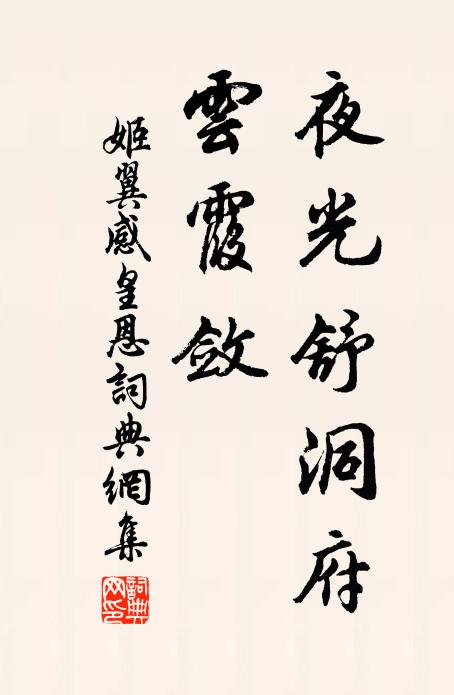 夜光舒洞府
雲霞斂
姬翼感皇恩詞典網集
詞典網印